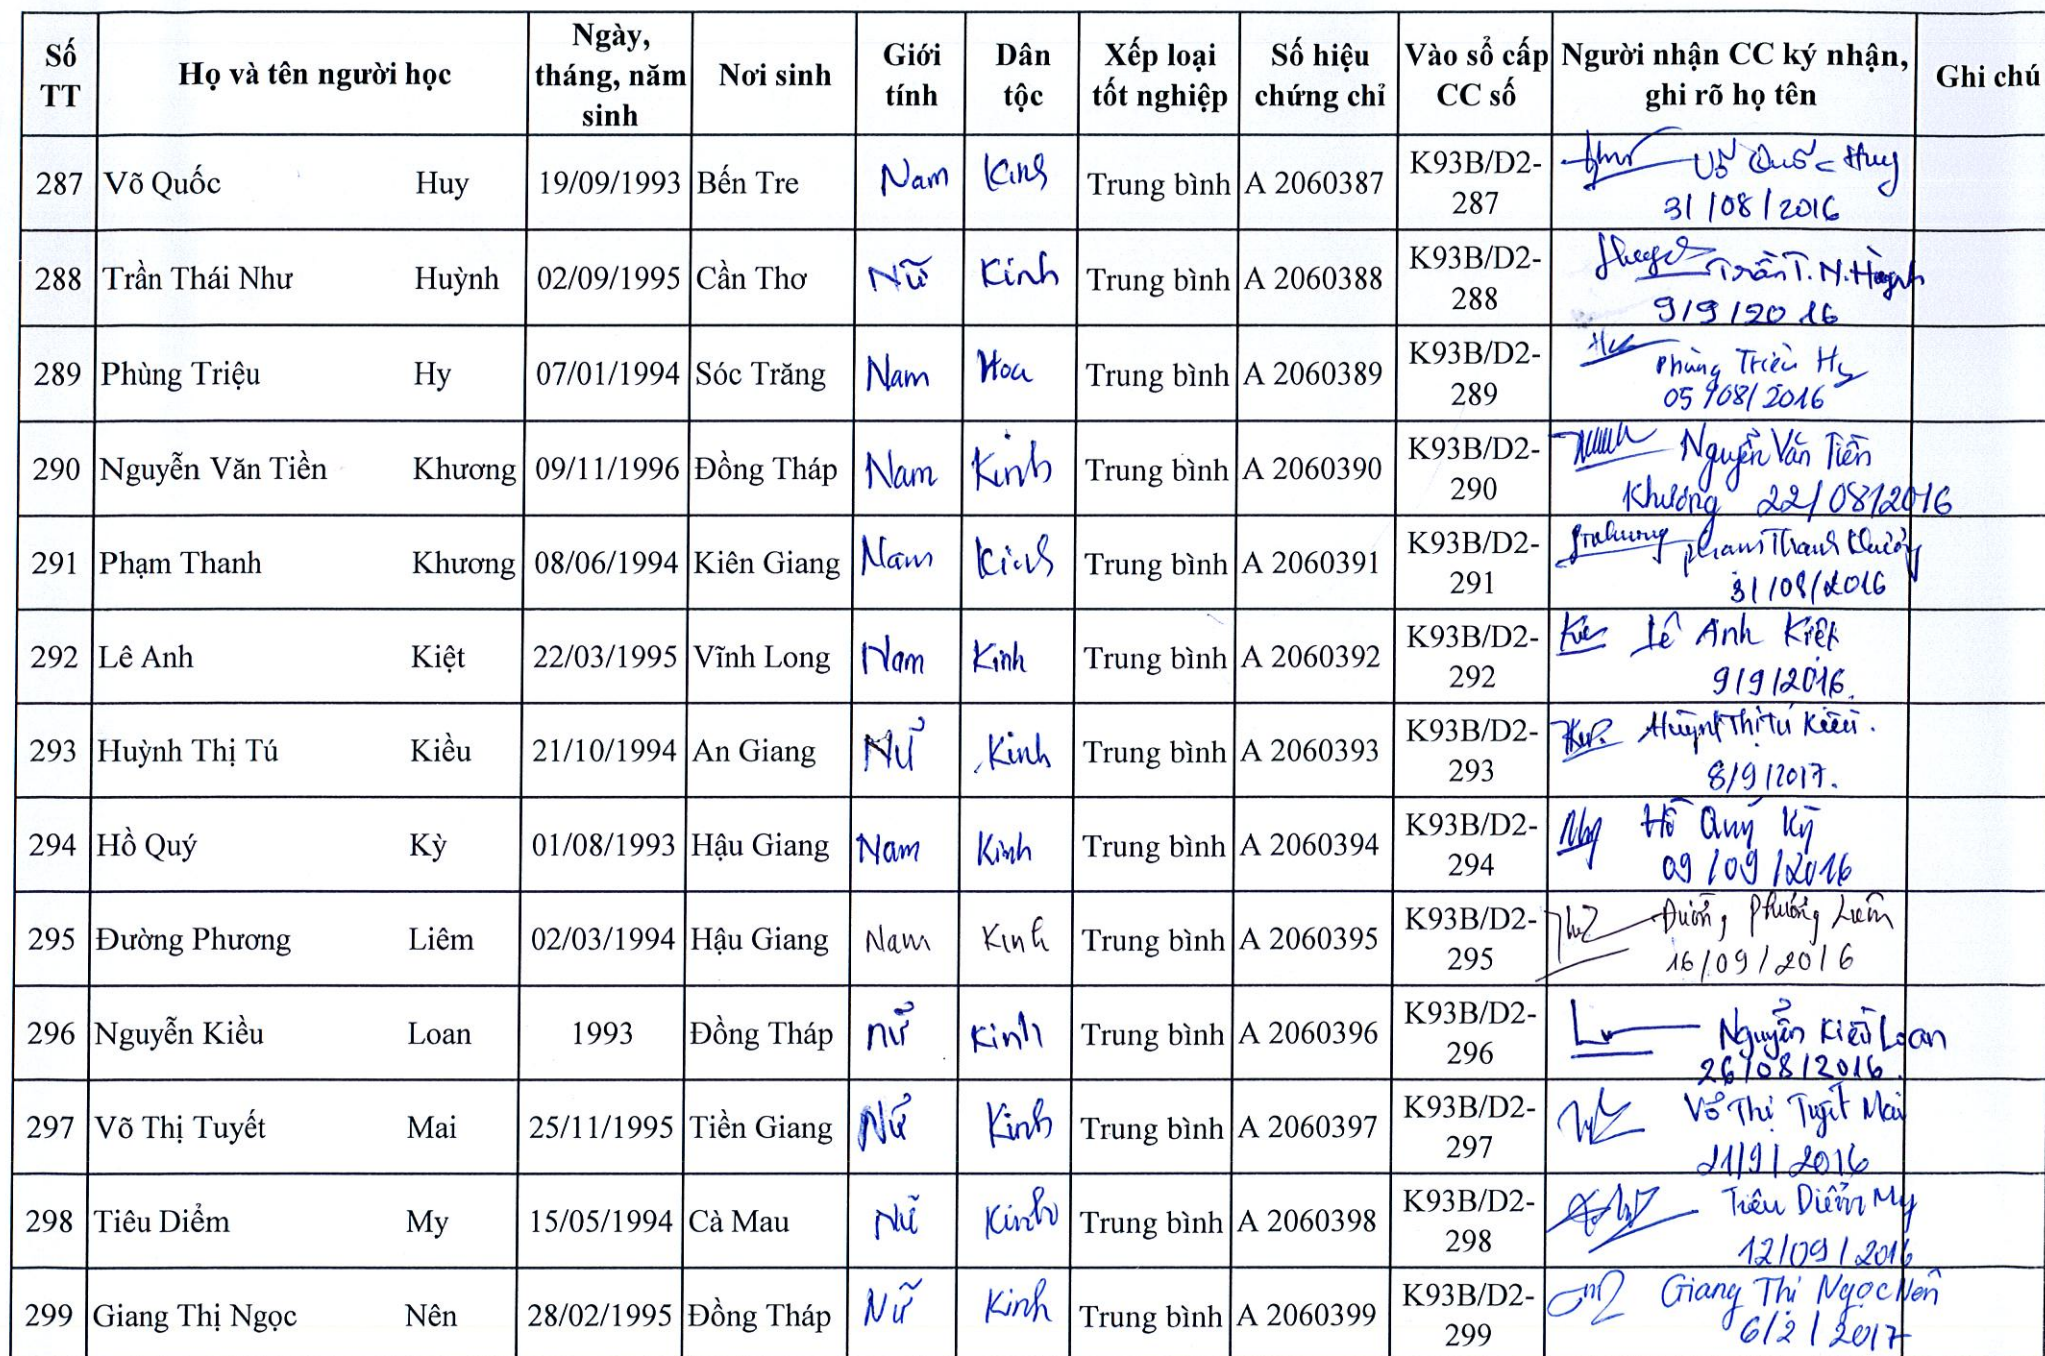 Số TT | Họ và tên người học | Ngày, tháng, năm sinh | Nơi sinh | Giới tính | Dân tộc | Xếp loại tốt nghiệp | Số hiệu chứng chỉ | Vào sổ cấp CC số | Người nhận CC ký nhận, ghi rõ họ tên | Ghi chú
287 | Võ Quốc Huy | 19/09/1993 | Bến Tre | Nam | Kinh | Trung bình | A 2060387 | K93B/D2-287 | Võ Quốc Huy 31/08/2016
288 | Trần Thái Như Huỳnh | 02/09/1995 | Cần Thơ | Nữ | Kinh | Trung bình | A 2060388 | K93B/D2-288 | Trần T.N.Huỳnh 9/9/2016
289 | Phùng Triệu Hy | 07/01/1994 | Sóc Trăng | Nam | Hoa | Trung bình | A 2060389 | K93B/D2-289 | Phùng Triệu Hy 05/08/2016
290 | Nguyễn Văn Tiền Khương | 09/11/1996 | Đồng Tháp | Nam | Kinh | Trung bình | A 2060390 | K93B/D2-290 | Nguyễn Văn Tiền Khương 22/08/2016
291 | Phạm Thanh Khương | 08/06/1994 | Kiên Giang | Nam | Kinh | Trung bình | A 2060391 | K93B/D2-291 | Phạm Thanh Khương 31/08/2016
292 | Lê Anh Kiệt | 22/03/1995 | Vĩnh Long | Nam | Kinh | Trung bình | A 2060392 | K93B/D2-292 | Lê Anh Kiệt 9/9/2016.
293 | Huỳnh Thị Tú Kiều | 21/10/1994 | An Giang | Nữ | Kinh | Trung bình | A 2060393 | K93B/D2-293 | Huỳnh Thị Tú Kiều. 8/9/2017.
294 | Hồ Quý Kỳ | 01/08/1993 | Hậu Giang | Nam | Kinh | Trung bình | A 2060394 | K93B/D2-294 | Hồ Quý Kỳ 09/09/2016
295 | Đường Phương Liêm | 02/03/1994 | Hậu Giang | Nam | Kinh | Trung bình | A 2060395 | K93B/D2-295 | Đường Phương Liêm 16/09/2016
296 | Nguyễn Kiều Loan | 1993 | Đồng Tháp | nữ | Kinh | Trung bình | A 2060396 | K93B/D2-296 | Nguyễn Kiều Loan 26/08/2016.
297 | Võ Thị Tuyết Mai | 25/11/1995 | Tiền Giang | Nữ | Kinh | Trung bình | A 2060397 | K93B/D2-297 | Võ Thị Tuyết Mai 21/9/2016
298 | Tiêu Diểm My | 15/05/1994 | Cà Mau | Nữ | Kinh | Trung bình | A 2060398 | K93B/D2-298 | Tiêu Diểm My 12/09/2016
299 | Giang Thị Ngọc Nên | 28/02/1995 | Đồng Tháp | Nữ | Kinh | Trung bình | A 2060399 | K93B/D2-299 | Giang Thị Ngọc Nên 6/2/2017